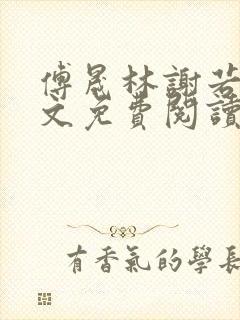 傅晟林謝若
文免費閱讀
有香氣的學長